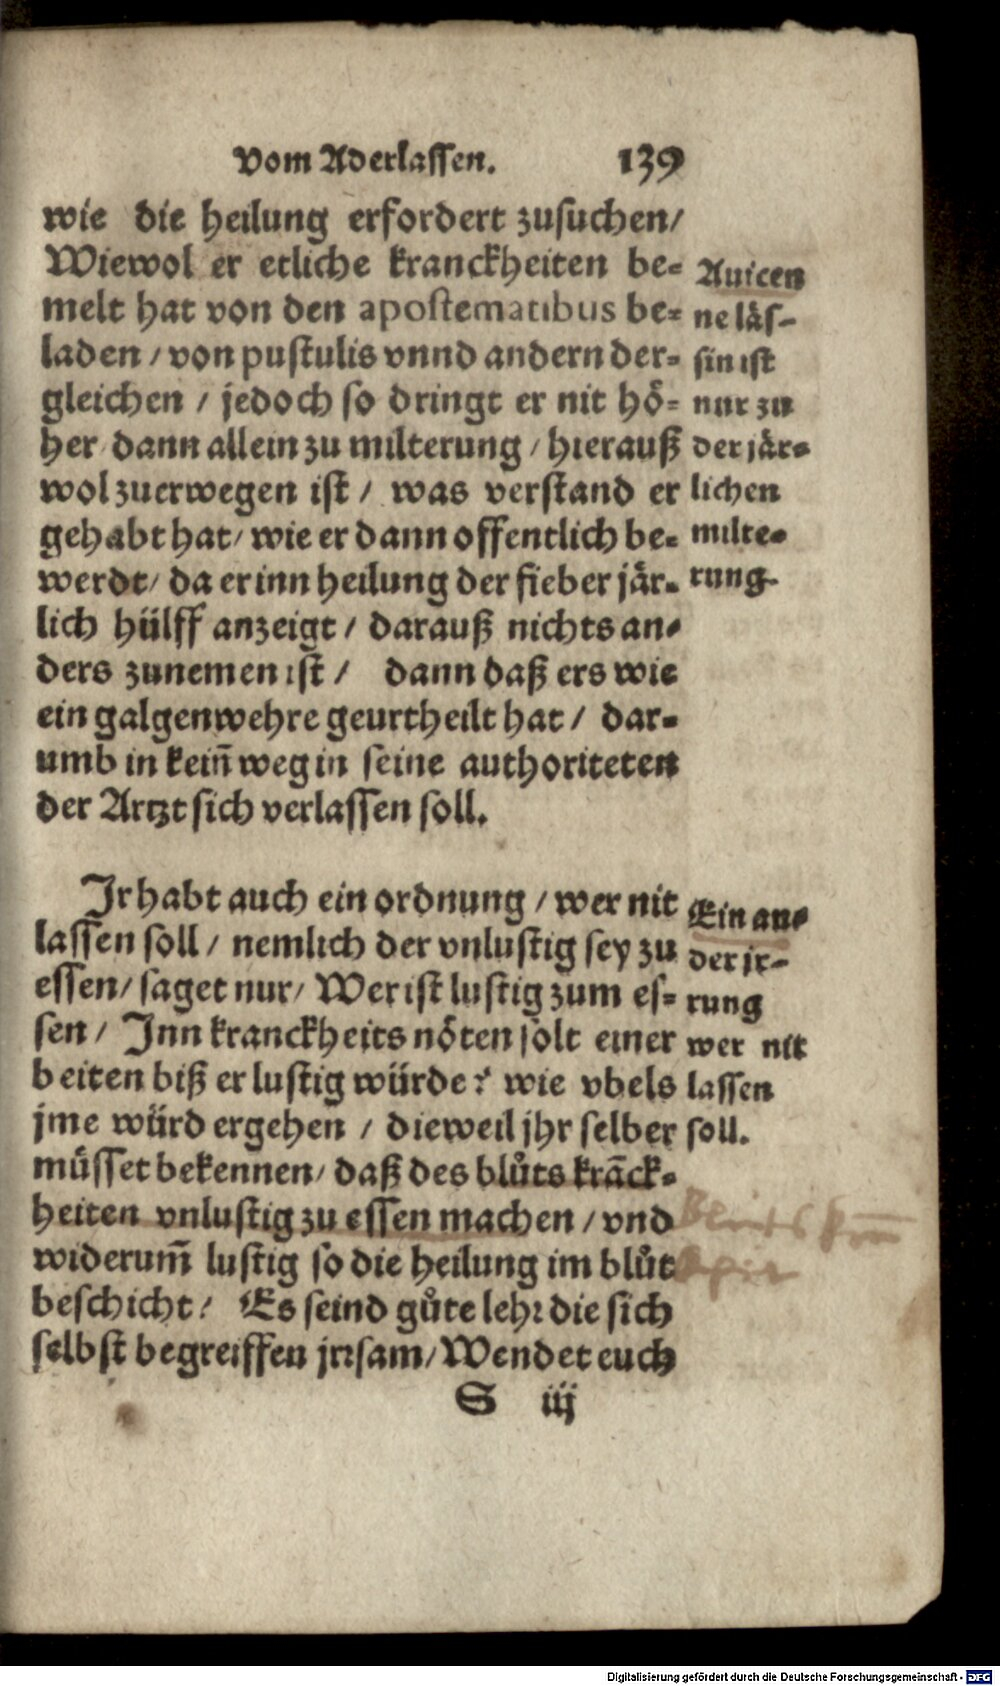 Vom Aderlassen. 139
wie die heilung erfordert zusuchen/
Wiewol er etliche kranckheiten be=
melt hat von den apostematibus be=
laden / von pustulis vnnd andern der=
gleichen / jedoch so dringt er nit hö=
her dann allein zu milterung / hierauß
wol zuerwegen ist / was verstand er
gehabt hat/ wie er dann offentlich be=
werdt/ da er inn heilung der fieber jär=
lich hülff anzeigt / darauß nichts an=
ders zunemen ist / dann daß ers wie
ein galgenwehre geurtheilt hat / dar=
umb in keiñ weg in seine authoriteten
der Artzt sich verlassen soll.
Auicen
ne läs=
sin ist
nur zu
der jär=
lichen
milte=
rung.
Ir habt auch ein ordnung / wer nit
lassen soll / nemlich der vnlustig sey zu
essen/ saget nur/ Wer ist lustig zum es=
sen / Inn kranckheits nöten solt einer
beiten biß er lustig würde? wie vbels
jme würd ergehen / dieweil jhr selber
müsset bekennen/ daß des blůts krāck=
heiten vnlustig zu essen machen / vnd
widerum̃ lustig so die heilung im blůt
beschicht / Es seind gůte lehr die sich
selbst begreiffen jrrsam/ Wendet euch
Ein an=
der jr=
rung
wer nit
lassen
soll.
Bluts
S iij
Digitalisierung gefördert durch die Deutsche Forschungsgemeinschaft - DFG